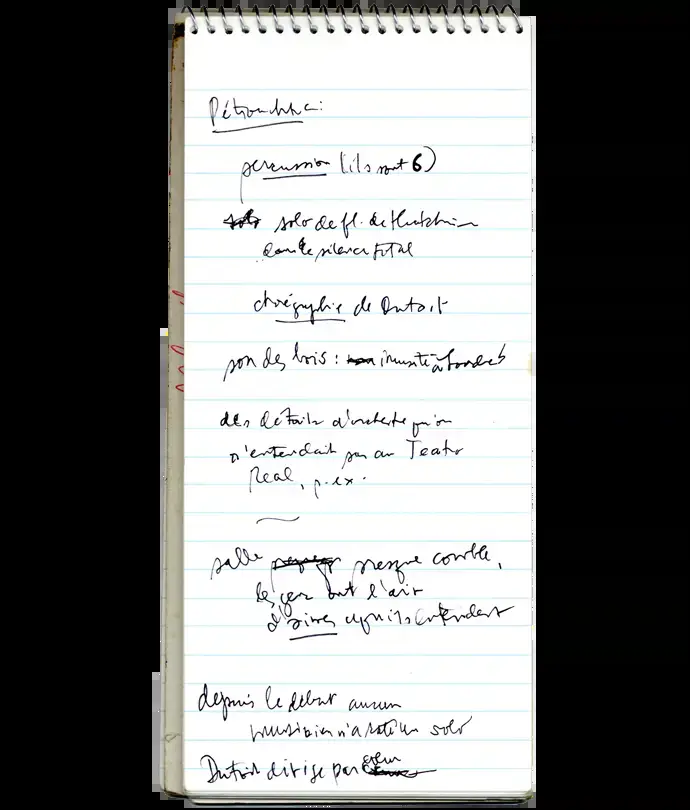 Pétrouchka :
percussion (ils sont 6)
solo de fl. de Hutchins
dans le silence total
chorégraphie de Dutoit
son des bois : inusité à Londres
des détails d'orchestre qu'on
n'entendait pas au Teatro
Real, p. ex.
salle presque comble,
les gens ont l'air
d'aimer ce qu'ils entendent
depuis le début aucun
musicien n'a raté un solo
Dutoit dirige par cœur